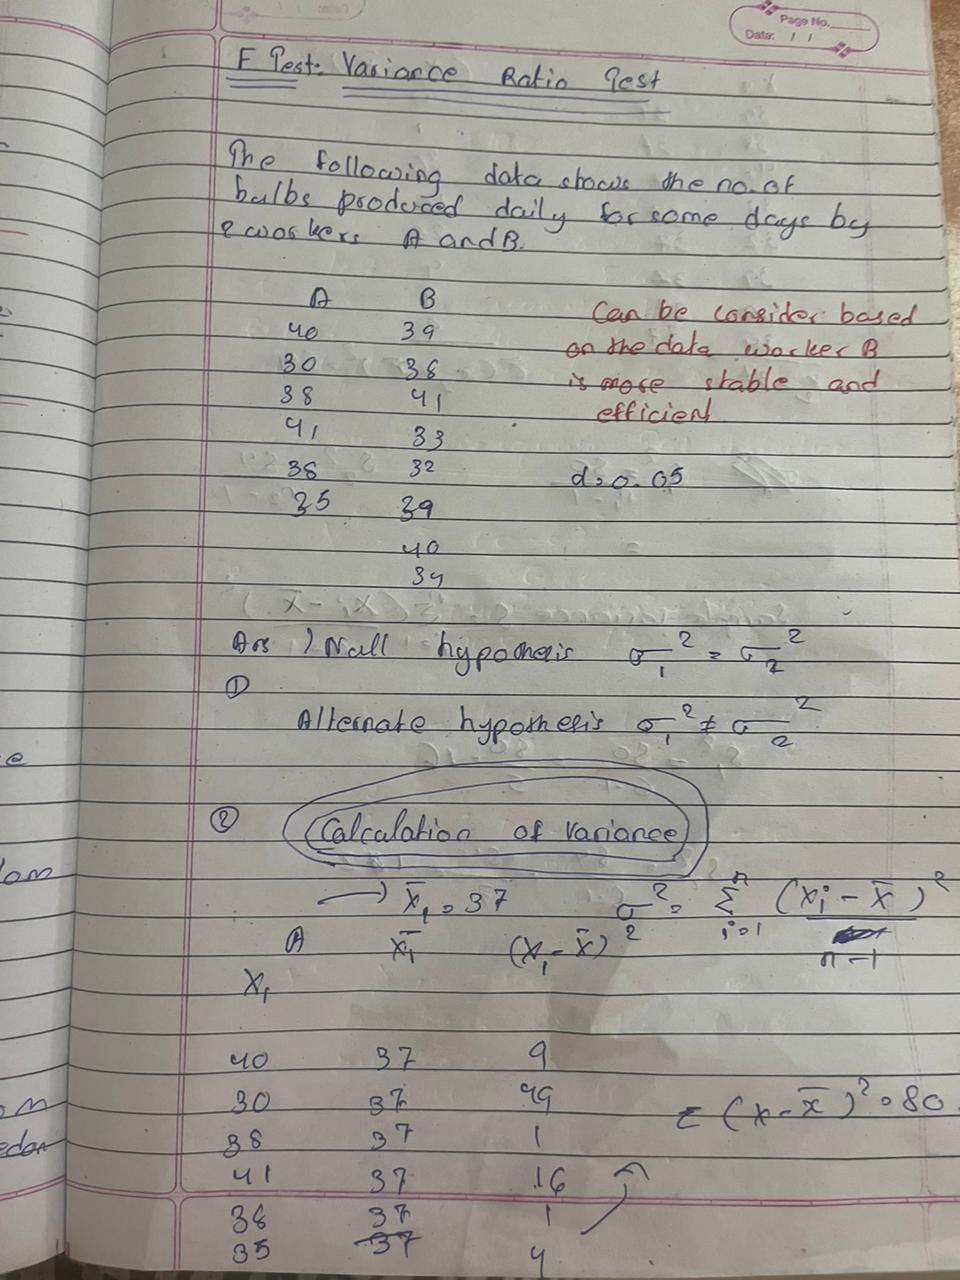 Page No.
Date: / /
F Test: Variance Ratio Test
The following data shows the no. of
bulbs produced daily for some days by
2 workers A and B.
A B
40 39
30 38
38 41
41 33
38 32
35 39
40
34
Can be consider based
on the data worker B
is more stable and
efficient
α = 0.05
Ans ) Null hypothesis σ₁² = σ₂²
①
Alternate hypothesis σ₁² ≠ σ₂²
② Calculation of variance
→ x̄₁ = 37 σ² = Σⁿᵢ₌₁ (xᵢ - x̄)² / n-1
A x̄₁ (x₁ - x̄)²
X₁
40 37 9
30 37 49
38 37 1
41 37 16
38 37 1
35 37 4
Σ (x - x̄)² = 80